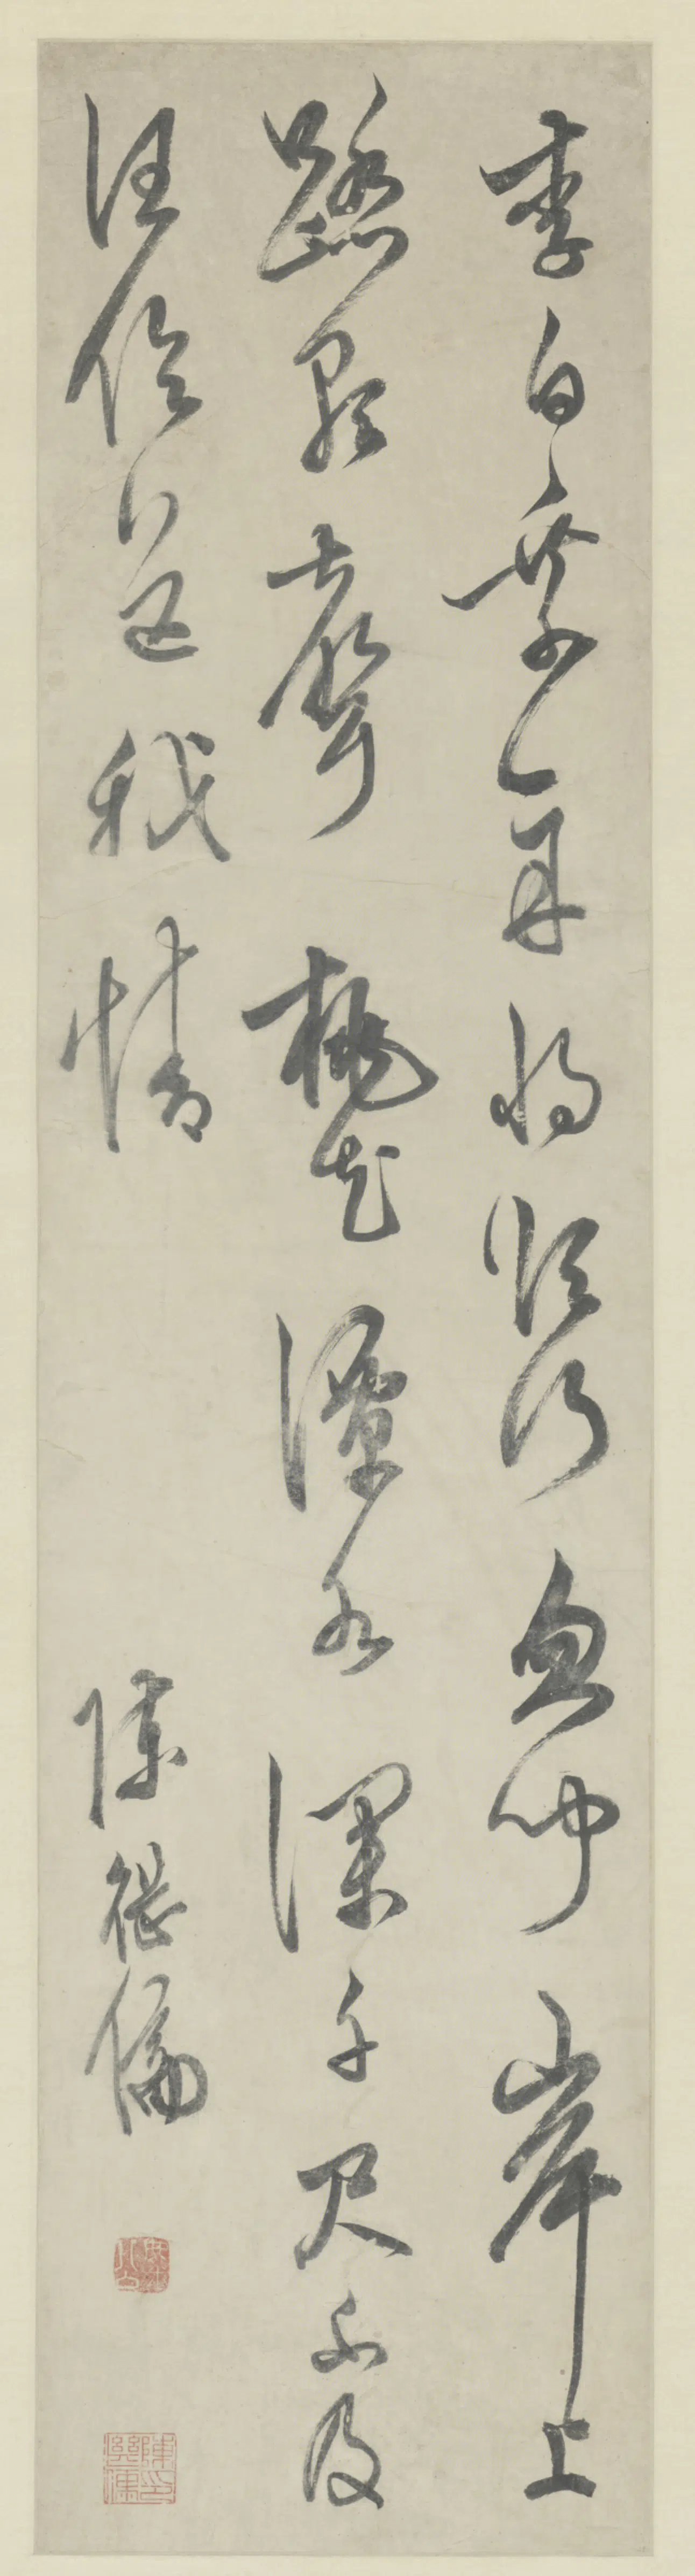 李白乘舟將欲行忽聞岸上
踏歌聲桃花潭水深千尺不及
汪倫送我情
陳繼儒
陳印繼儒